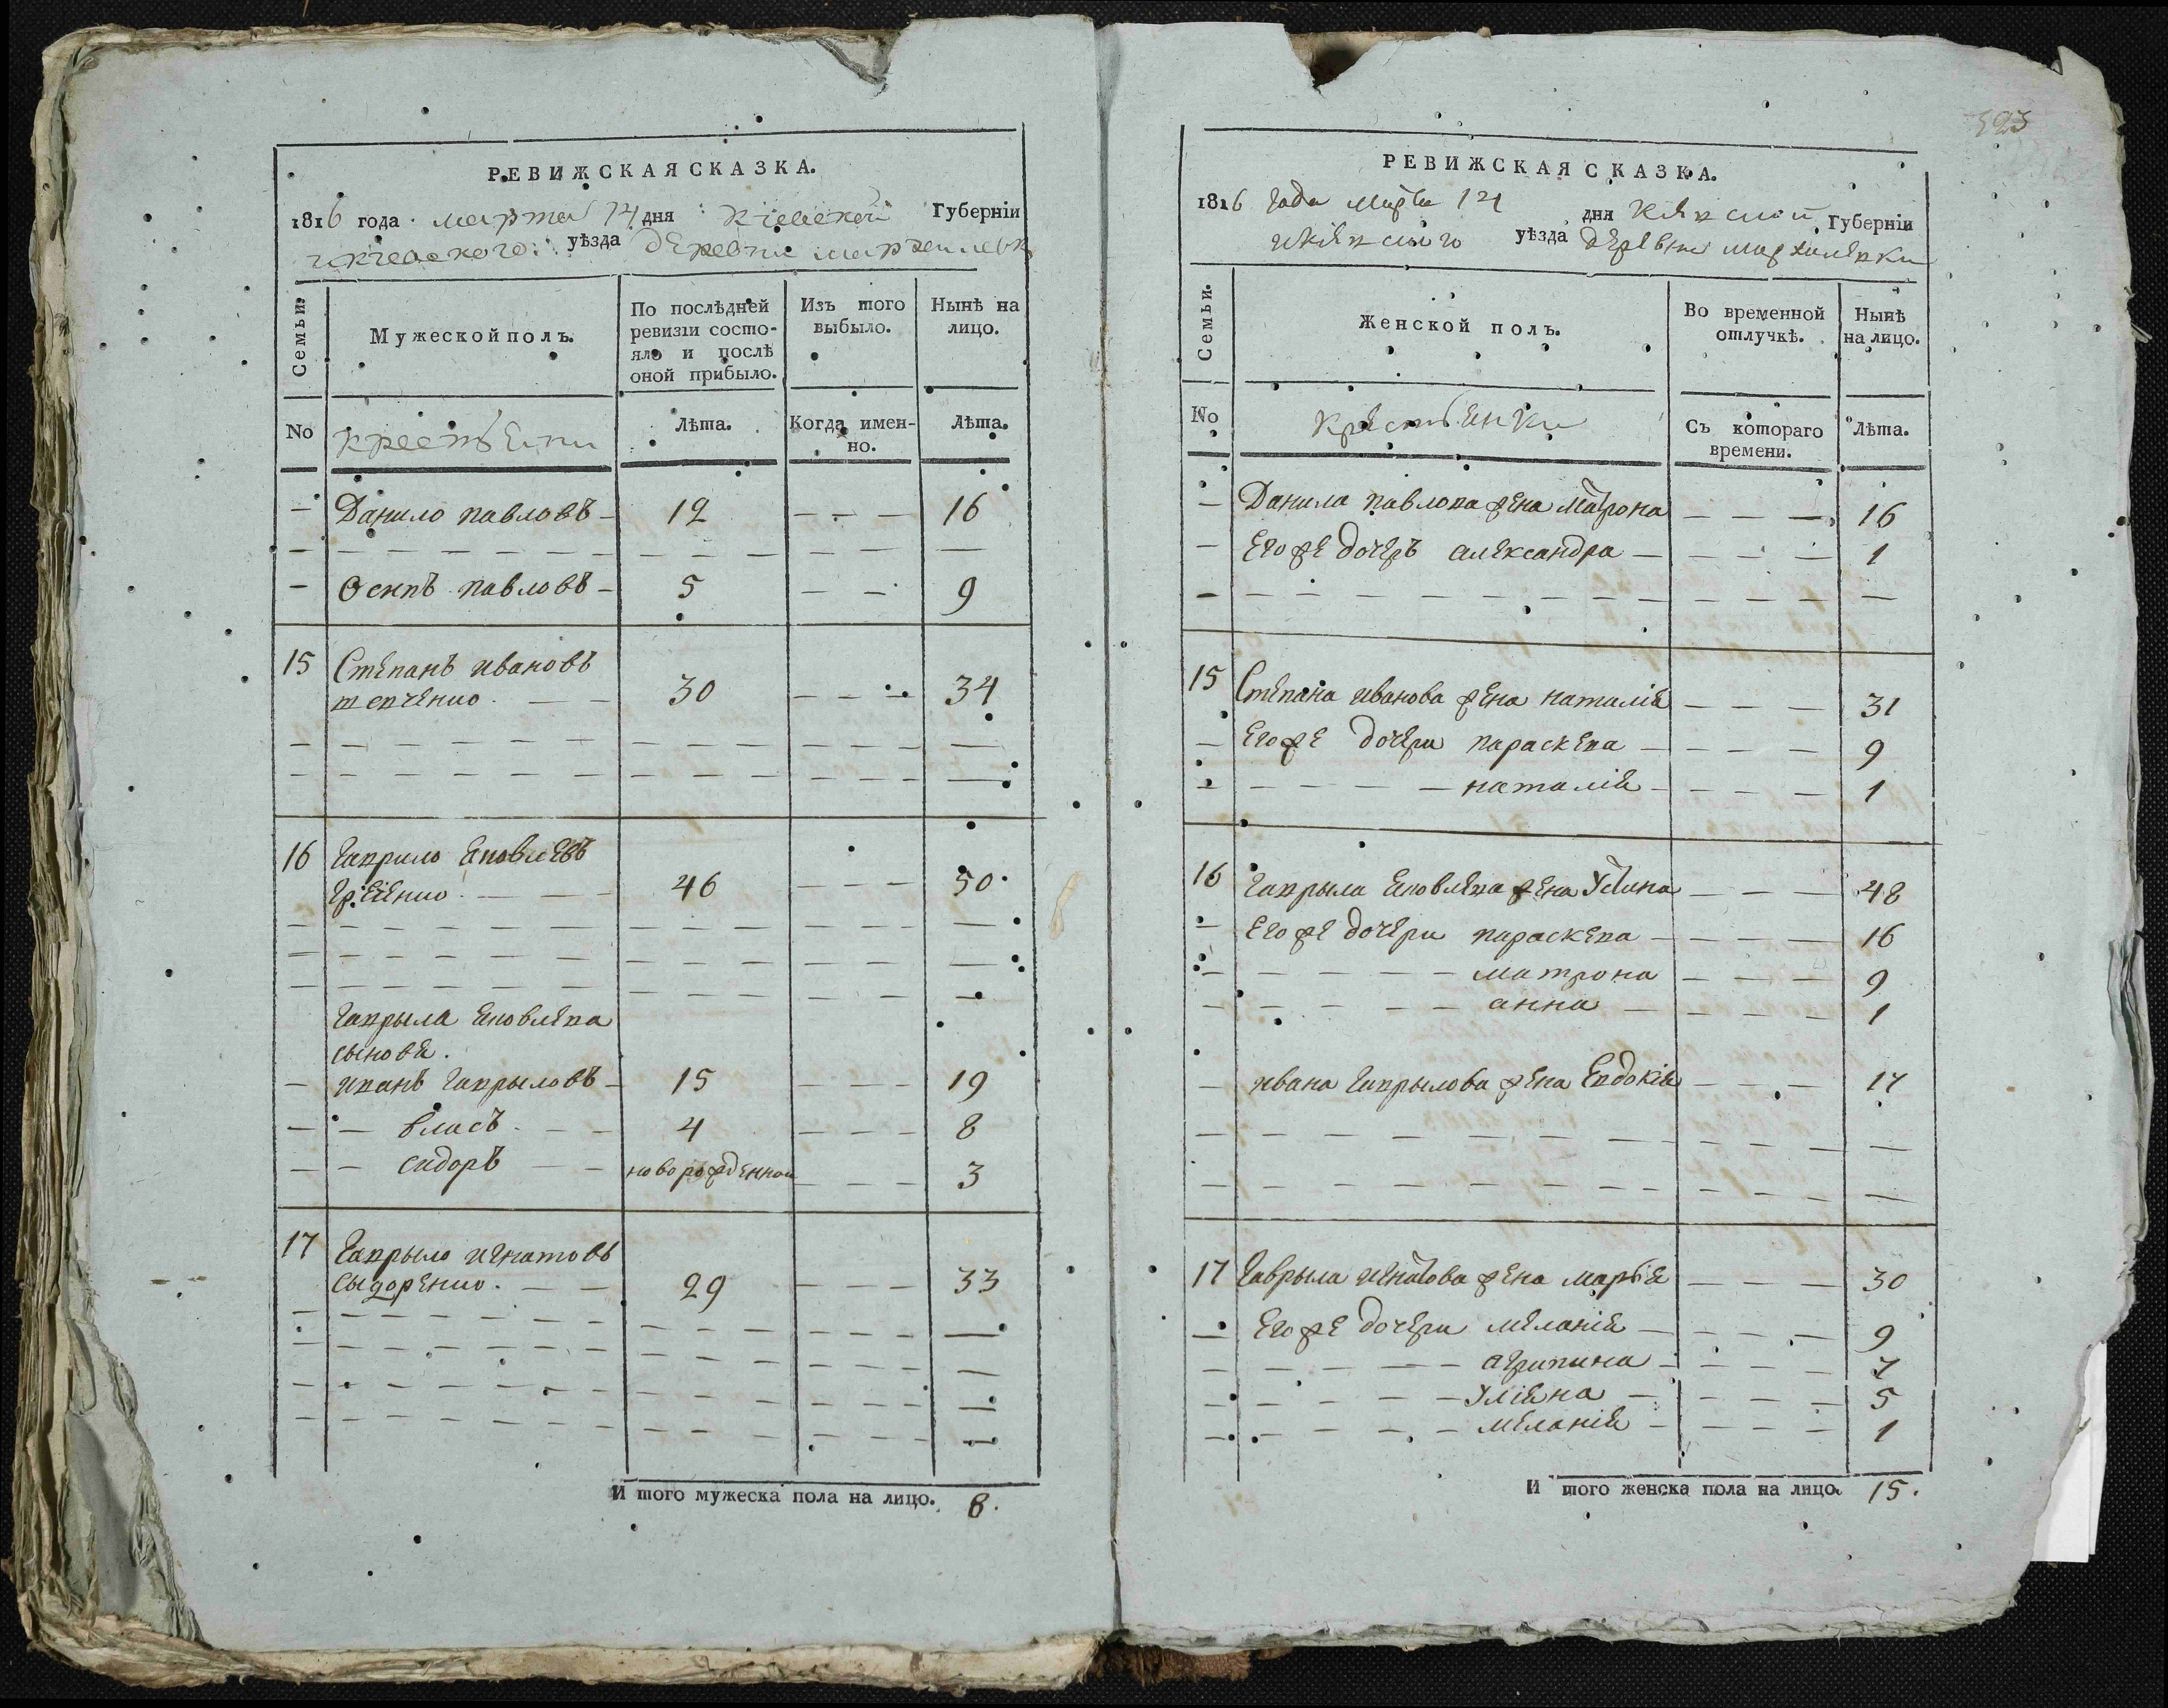 РЕВИЖСКАЯ СКАЗКА.
1816 года марта 14 дня Кіевской Губерніи
и кіевского уѣзда деревни мархалевк
Семьи.
Мужеской полъ.
По послѣдней
ревизіи состо-
яло и послѣ
оной прибыло.
Изъ того
выбыло.
Нынѣ на
лицо.
No
крестьяни
Лѣта.
Когда имен-
но.
Лѣта.
— Данило павловъ — 12 — — — 16
— Осипъ павловъ — 5 — — 9
15 Степанъ ивановъ
30 — — — 34
16 Гаврило Яковлевъ
46 — — — 50
Гаврыла Яковлева
сыновя.
— иванъ Гаврыловъ — 15 — — — 19
— — власъ — — 4 — — — 8
— — сидоръ — — новорожденной — — — 3
17 Гаврыло игнатовъ
сыдоренко — — 29 — — — 33
И того мужеска пола на лицо. 8.
РЕВИЖСКАЯ СКАЗКА.
1816 года марта 14 дня Кіевской Губерніи
и кіевского уѣзда деревни мархалевки
Семьи.
Женской полъ.
Во временной
отлучкѣ.
Нынѣ
на лицо.
No
крестьянки
Съ котораго
времени.
Лѣта.
— Данила павлова жена матрона — — — 16
— Его же дочеръ александра — — — — 1
15 Степана иванова жена наталія — — — 31
— Его же дочери параскева — — — — 9
— — — — — наталія — — — — 1
16 Гаврыла Яковлева жена Устина — — — 48
— Его же дочери параскева — — — — 16
— — — — — матрона — — — 9
— — — — — анна — — — — 1
— ивана Гаврылова жена Евдокія — — — 17
17 Гаврыла игнатова жена марія — — — 30
— Его же дочери меланія — — — — 9
— — — — — агрипина — — — — 7
— — — — — Уліяна — — — — 5
— — — — — меланія — — — — 1
И того женска пола на лицо. 15.